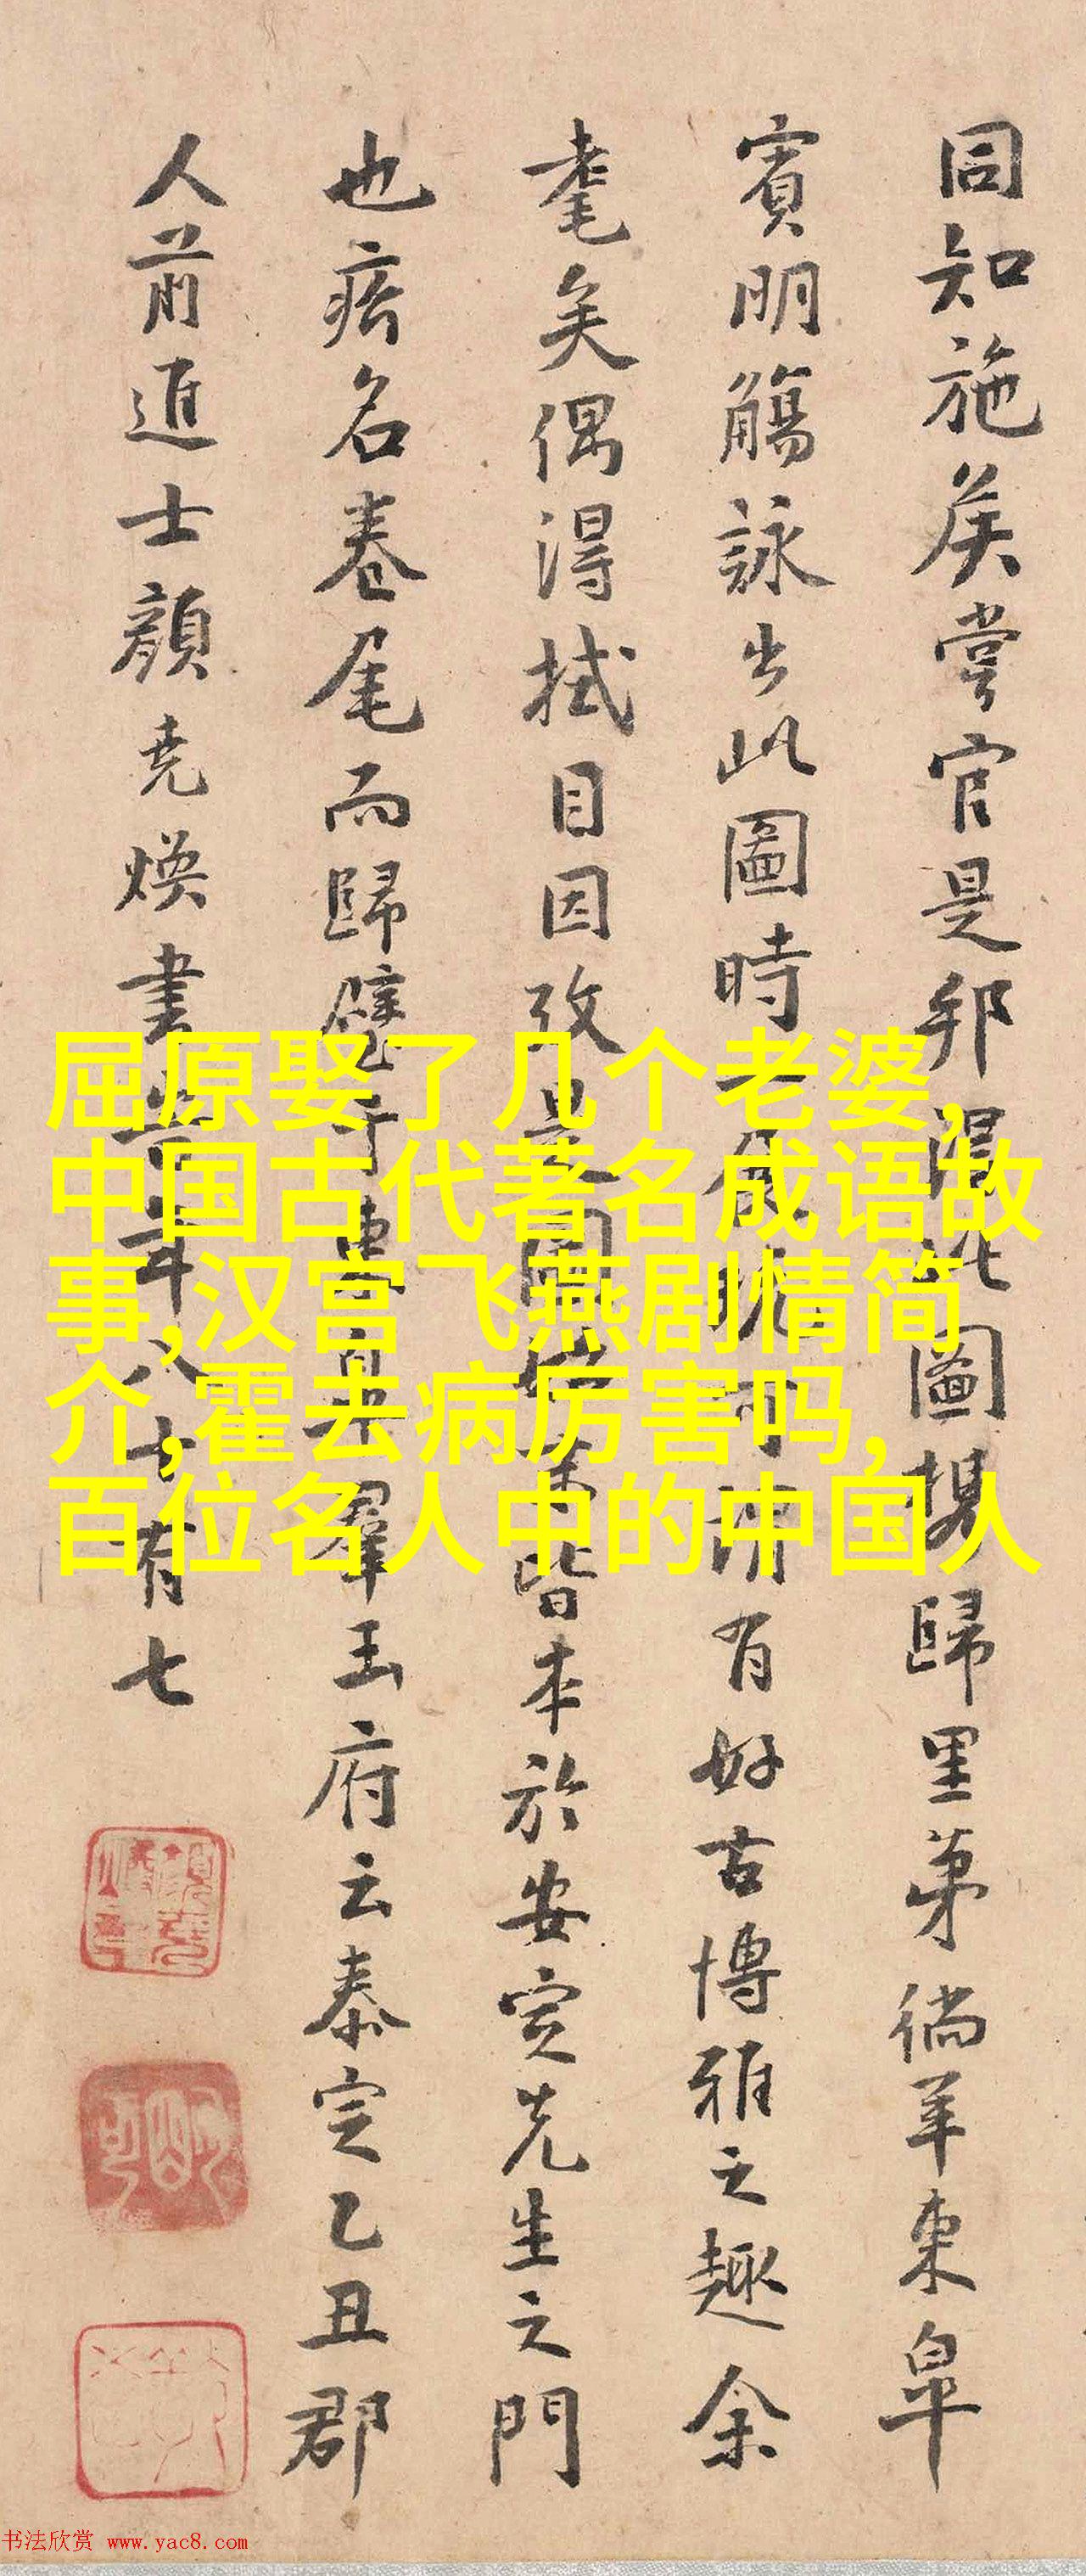 同知施矦嘗官是邦得此圖揭歸里第徜羊東皐
賓明觴詠出此圖時一展眺可謂有好古博雅之趣余
耄矣偶得拭目因攷景圖始末皆本於安定先生之門
也痞名卷尾而歸璧于東臯羣玉府云泰定乙丑郡
人前進士顔堯煥書告年八十有七
屈原娶了几个老婆,
中国古代著名成语故
事,汉宫飞燕剧情简
介,霍去病厉害吗,
百位名人中的中国人
书法欣赏 www.yac8.com